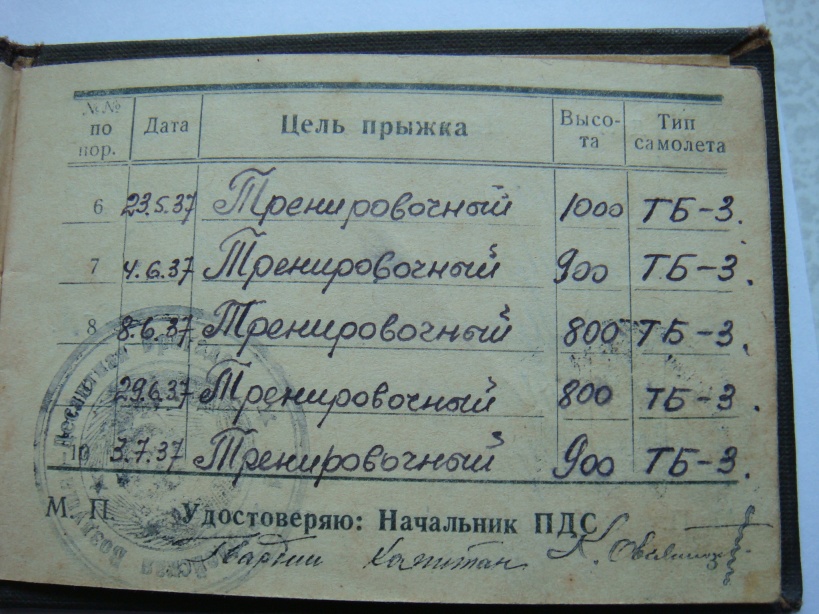 №№ по пор. Дата Цель прыжка Высо- Тип
та самолета
6 23.5.37 Тренировочный 1000 ТБ-3.
7 4.6.37 Тренировочный 900 ТБ-3.
8 8.6.37 Тренировочный 800 ТБ-3.
29.6.37 Тренировочный 800 ТБ-3.
10 3.7.37 Тренировочный 900 ТБ-3.
М. П. Удостоверяю: Начальник ПДС
Гвардии Капитан К.